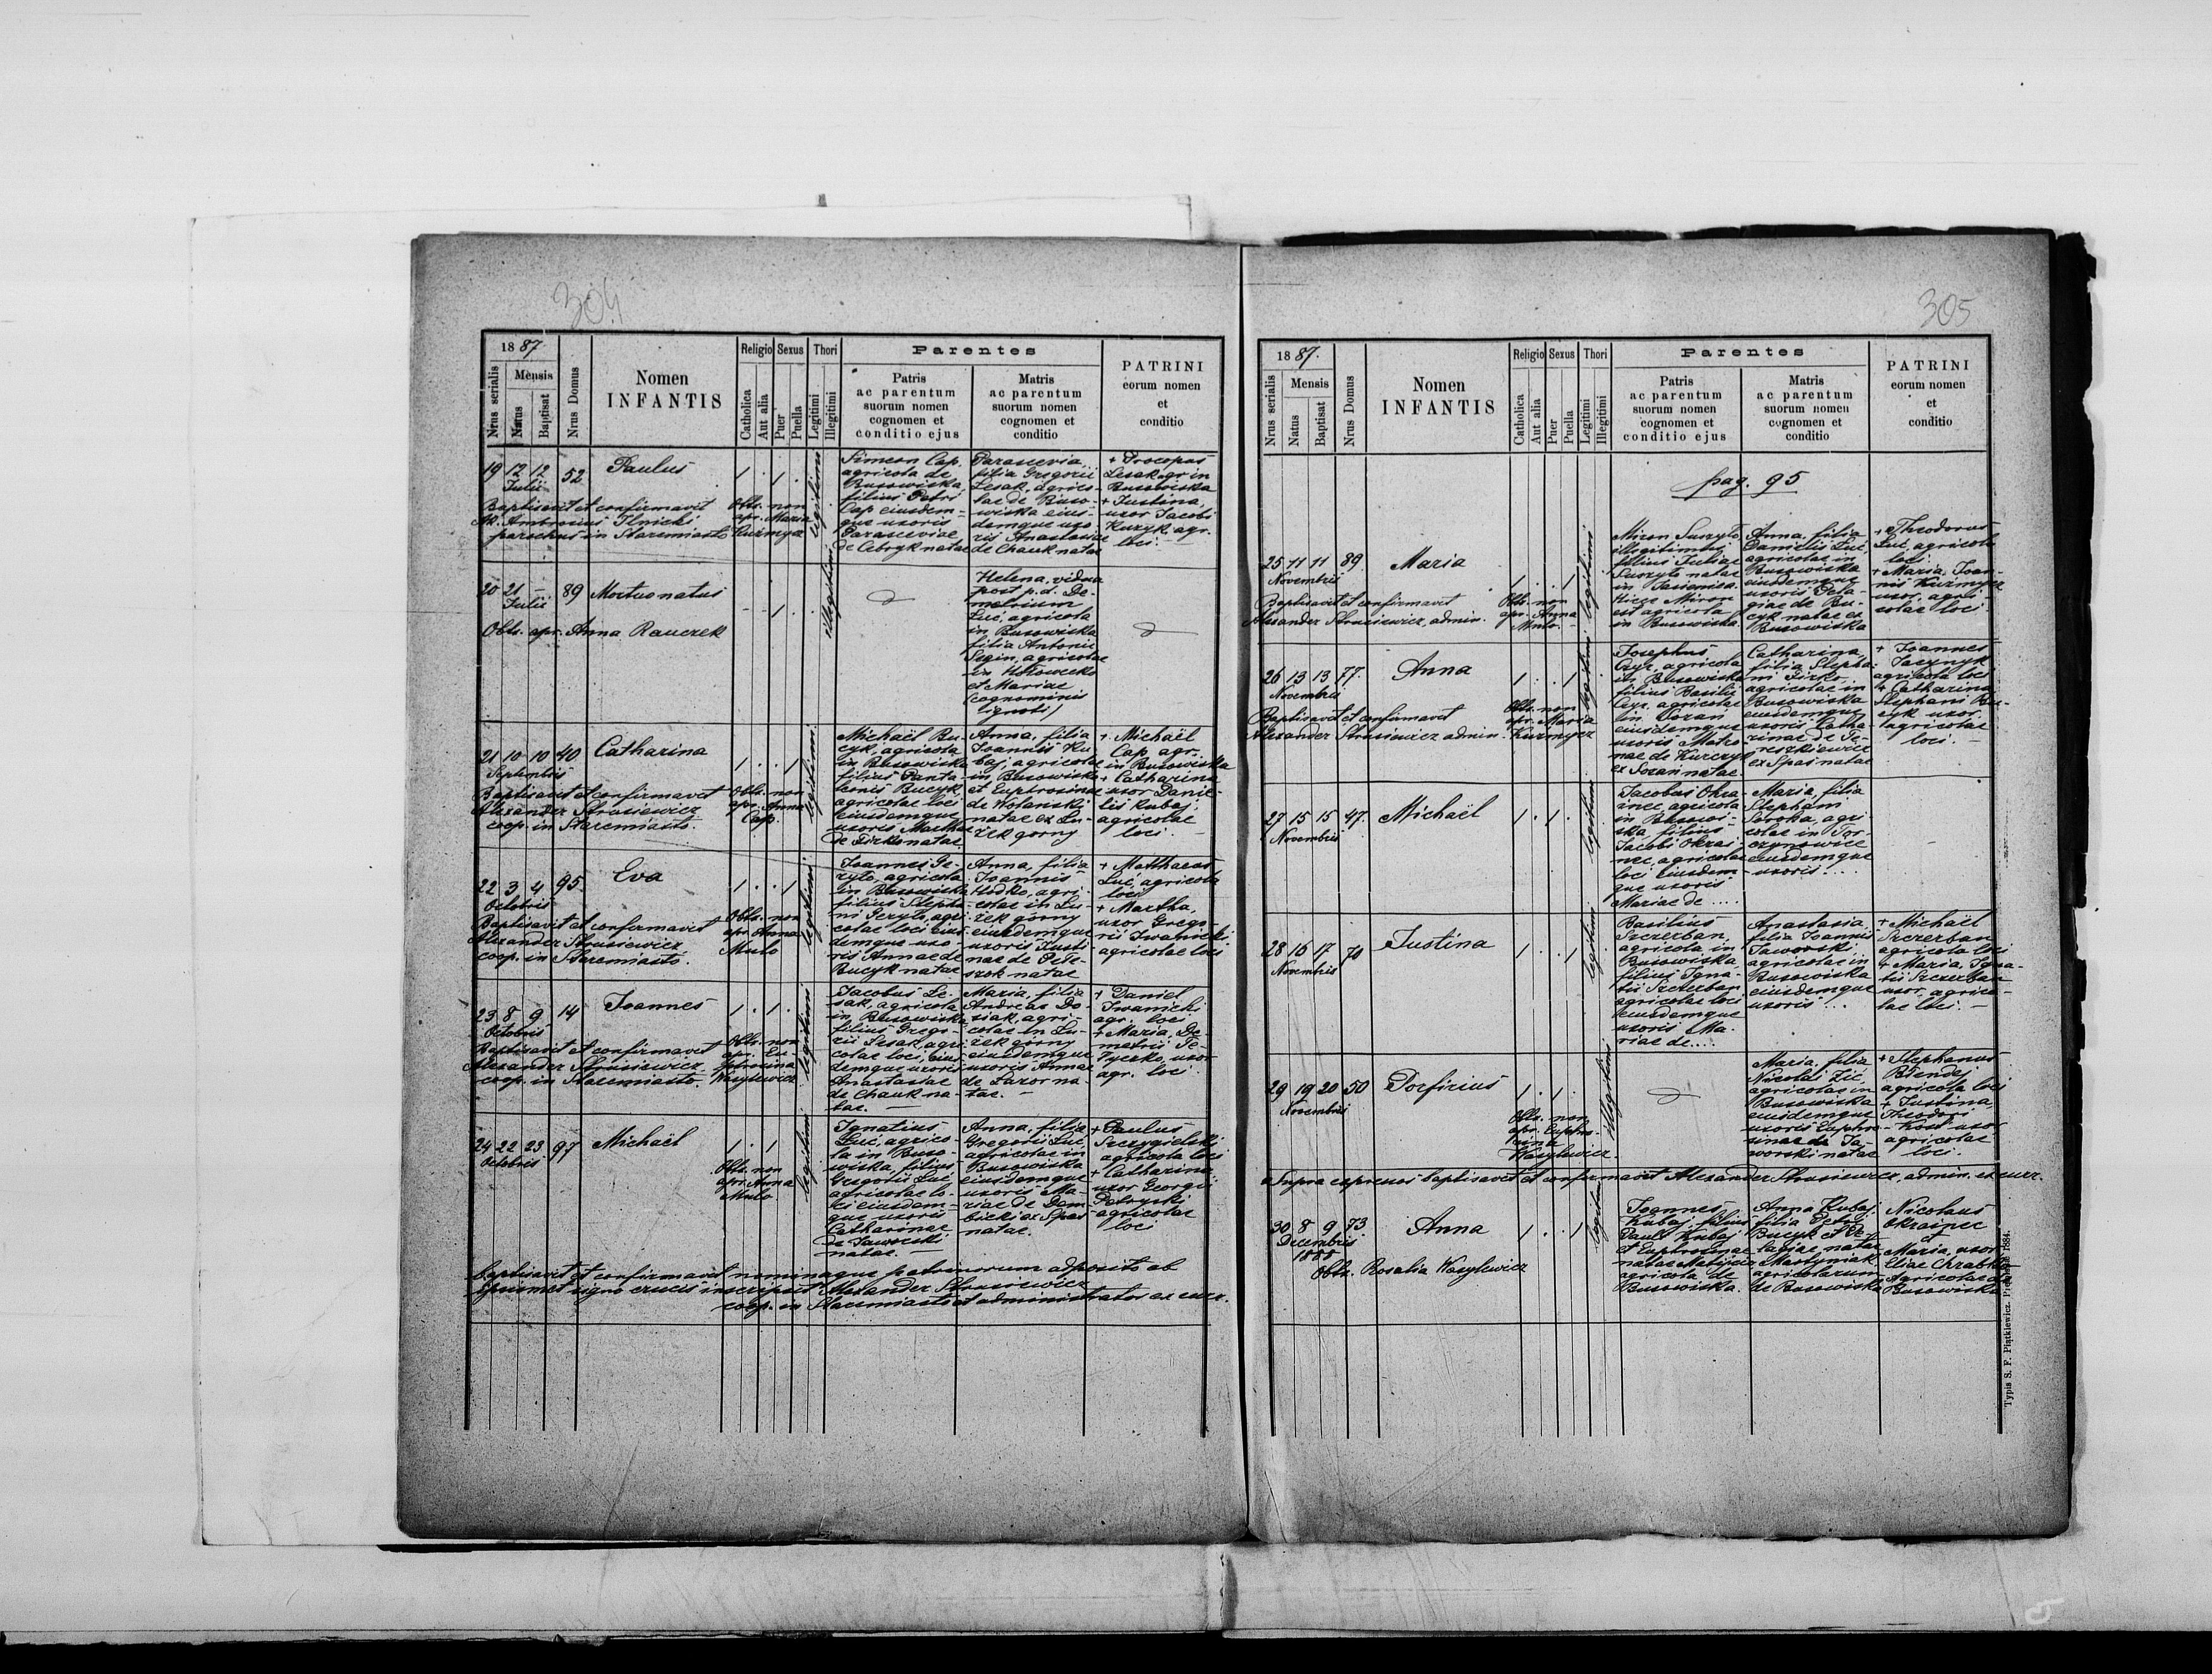 304
18 87
Nrus serialis
Mensis
Natus
Baptisat
Nrus Domus
Nomen
INFANTIS
Religio
Catholica
Aut alia
Sexus
Puer
Puella
Thori
Legitimi
Illegitimi
Parentes
Patris
ac parentum
suorum nomen
cognomen et
conditio ejus
Matris
ac parentum
suorum nomen
cognomen et
conditio
PATRINI
eorum nomen
et
conditio
19 12 12 52 Paulus 1 . 1 .
Julii
Baptisavit et confirmavit
Ambrosius Ilnicki
parochus in Staremiasto
Obst. non
apr. Maria
Kuzmycz
legitimi
Simeon Cap
agricola de
Busowiska
filius Petri
Cap eiusdem-
que uxoris
Parasceviae
de Cebryk natae
Parascevia
filia Gregorii
Lesak, agrico-
lae de Buso-
wiska eius-
demque uxo-
ris Anastasiae
de Chauk natae
+ Procopus
Lesak agr. in
Busowiska
+ Justina,
uxor Jacobi
Kuzyk, agr.
loci.
20 21 – 89 Mortuo natus - - 1 .
Julii
Obst. apr. Anna Rauczek
illegitimi
Helena, vidua
post p. d. De-
metrium
Luć, agricola
in Busowiska
filia Antonii
Segin, agricolae
in Hołowecko
et Mariae
(cognominis
ignoti)
21 10 10 40 Catharina 1 . . 1
Septembris
Baptisavit et confirmavit
Alexander Strusiewicz
coop. in Staremiasto.
Obst. non
apr. Anna
Cap.
legitimi
Michaël Bu-
cyk, agricola
in Busowiska
filius Panta-
leonis Bucyk
agricolae loci
eiusdemque
uxoris Marthae
de Firko natae
Anna, filia
Joannis Ku-
baj, agricolae
in Busowiska
et Euphrosinae
de Wolanski
natae ex Łu-
żek gorny
+ Michaël
Cap agr.
in Busowiska
+ Catharina
uxor Danie-
lis Kubaj,
agricolae
loci. –
22 3 4 95 Eva 1 . . 1
Octobris
Baptisavit et confirmavit
Alexander Strusiewicz
coop. in Staremiasto.
Obst. non
apr. Anna
Mulo
legitimi
Joannes Ge-
ryło, agricola
in Busowiska
filius Stepha-
ni Geryło, agri-
colae loci eius-
demque uxo-
ris Annae de
Bucyk natae
Anna, filia
Joannis
Hodko, agri-
colae in Łu-
żek gorny
eiusdemque
uxoris Justi-
nae de Pete-
szok natae
+ Matthaeus
Luć, agricola
loci
+ Martha,
uxor Grego-
rii Iwanicki
agricolae loci
23 8 9 14 Joannes 1 . 1 .
Octobris
Baptisavit et confirmavit
Alexander Strusiewicz
coop. in Staremiasto.
Obst. non
apr. Eu-
phrosina
Wasylewicz
legitimi
Jacobus Le-
sak, agricola
in Busowiska
filius Grego-
rii Lesak, agri-
colae loci, eius-
demque uxoris
Anastasiae
de Chauk na-
tae. –
Maria, filia
Andreae Do-
siak, agri-
colae in Łu-
żek gorny
eiusdemque
uxoris Annae
de Lazor na-
tae. –
+ Daniel
Iwanicki
agr. loci
+ Maria, De-
metrii
uxor
agr. loci
24 22 23 97 Michaël 1 . 1
Octobris
Obst. non
apr. Anna
Mulo
legitimi
Ignatius
Luć, agrico-
la in Buso-
wiska, filius
Gregorii Luć
agricolae lo-
ci eiusdem-
que uxoris
Catharinae
de Jaworski
natae. –
Anna, filia
Gregorii Luć
agricolae in
Busowiska
eiusdemque
uxoris Ma-
riae de Dem-
bicki ex Spas
natae.
+ Paulus
Szczygielski
agricola loci
+ Catharina
uxor Georgii
Patryski
agricolae
loci
Baptisavit et confirmavit nominaque patrinorum adposito ab
ipsismet signo crucis inscripsit Alexander Strusiewicz
coop. in Staremiasto et administrator ex curr.
305
18 87.
Nrus serialis
Mensis
Natus
Baptisat
Nrus Domus
Nomen
INFANTIS
Religio
Catholica
Aut alia
Sexus
Puer
Puella
Thori
Legitimi
Illegitimi
Parentes
Patris
ac parentum
suorum nomen
cognomen et
conditio ejus
Matris
ac parentum
suorum nomen
cognomen et
conditio
PATRINI
eorum nomen
et
conditio
pag. 95
25 11 11 89 Maria 1 . . 1
Novembris
Baptisavit et confirmavit
Alexander Strusiewicz, admin.
Obst. non
apr. Anna
Mulo. –
legitimi
Miron
illegitimus
filius Juliae
natae
in
Hicce Miron
est agricola
in Busowiska.
Anna, filia
Danielis Luć,
agricolae in
Busowiska
eiusdemque
uxoris Pela-
giae de Bu-
cyk natae ex
Busowiska
+ Theodorus
Luć, agricola
loci
+ Maria, Joan-
nis Kuzmycz
uxor, agri-
colae loci
26 13 13 77. Anna 1 . . 1
Novembris
Baptisavit et confirmavit
Alexander Strusiewicz admin.
Obst. non
apr. Maria
Kuzmycz
legitimi
Josephus
Cyz, agricola
in Busowiska
filius Basilii
Cyz, agricolae
in Sozan
eiusdemque
uxoris Matro-
nae de Kurczyj
ex Sozan natae.
Catharina,
filia Stepha-
ni Firko,
agricolae in
Busowiska
eiusdemque
uxoris Catha-
rinae de Te-
reszkiewicz
ex Spas natae
+ Joannes
Jacynyk
agricola loci
+ Catharina
Stephani Bu-
cyk uxor
agricolae
loci. –
27 15 15 47. Michaël 1 . 1 .
Novembris
legitimi
Jacobus Okra-
inec agricola
in Busowi-
ska, filius
Jacobi Okrai-
nec, agricolae
loci eiusdem-
que uxoris
Mariae de ....
Maria, filia
Stephani
Soroka, agri-
colae in Tor-
czynowice
eiusdemque
uxoris ....
–
28 16 17 70 Justina 1 . . 1
Novembris
legitimi
Basilius
Szczerban
agricola in
Busowiska
filius Igna-
tii Szczerban
agricolae loci
eiusdemque
uxoris Ma-
riae de....
Anastasia
filia Joannis
Jaworski
agricolae in
Busowiska
eiusdemque
uxoris ...
+ Michaël
Szczerban
agricola loci
+ Maria, Igna-
tii Szczerban
uxor agrico-
lae loci. –
29 19 20 50 Porfirius 1 . 1 .
Novembris
Obst. non
apr. Euphro-
sina
Wasylewicz
illegitimi
Maria, filia
Nicolai Zić,
agricolae in
Busowiska
eiusdemque
uxoris Euphro-
sinae de Ja-
worski natae
+ Stephanus
Biendej
agricola loci
+ Justina,
Theodori
Kost uxor
agricolae
loci.
Supra expressos baptisavit et confirmavit Alexander Strusiewicz, admin. ex curr.
30 8 9 73 Anna 1 . . 1
Decembris
1885
Obst. Rosalia Wasylewicz
legitimi
Joannes
Kubaj, filius
Pauli Kubaj
et Euphrosinae
natae
agricola de
Busowiska.
Anna Kubaj
filia Petri
Bucyk et Pe-
lagiae, natae
Martyniak
agricolarum
de Busowiska
Nicolaus
Okrainec
et
Maria, uxor
Eliae Chrabko
Agricolae de
Busowiska
Typis S. F. Piątkiewicz. Przemyśl 1884.
5